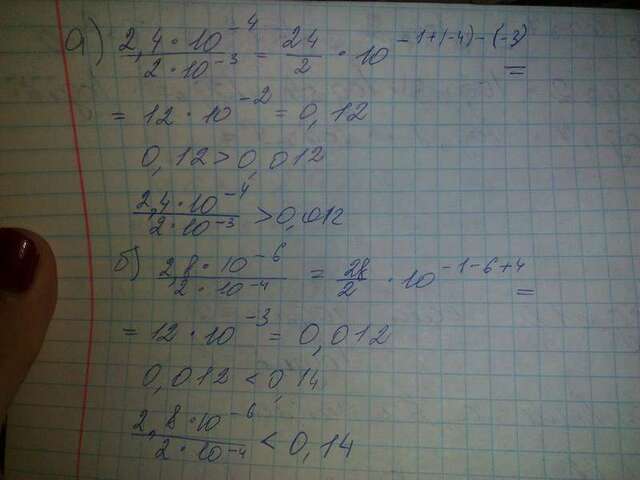 а) 2,4 · 10⁻⁴ / 2 · 10⁻³ = 24/2 · 10⁻¹⁺⁽⁻⁴⁾⁻⁽⁻³⁾ =
= 12 · 10⁻² = 0,12
0,12 > 0,012
2,4 · 10⁻⁴ / 2 · 10⁻³ > 0,012
б) 2,8 · 10⁻⁶ / 2 · 10⁻⁴ = 28/2 · 10⁻¹⁻⁶⁺⁴ =
= 12 · 10⁻³ = 0,012
0,012 < 0,14
2,8 · 10⁻⁶ / 2 · 10⁻⁴ < 0,14